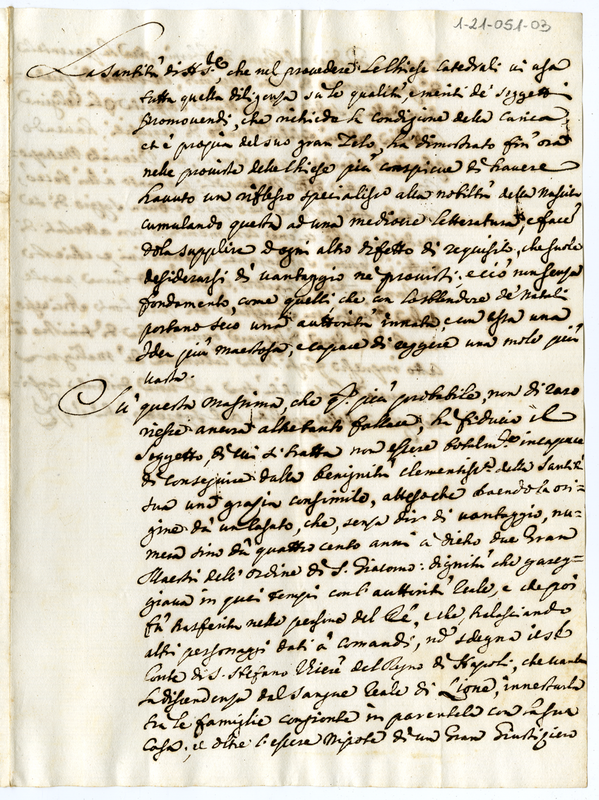 1-21-051-03
La Santità di N. Sre, che nel provedere le Chiese Catedrali vi usa
tutta quella diligenza su le qualità, e meriti de' Soggetti
promovendi, che richiede la condizione della carica,
et è propria del suo gran Zelo, hà dimostrato fin' ora
nelle proviste delle Chiese più conspicue di havere
havuto un riflesso specialissimo alla nobiltà della nascita
cumulando questa ad una mediocre letteratura, e facen-
dola supplire d'ogni altro difetto di requisito, che suole
desiderarsi di vantaggio ne' provisti, e ciò non senza
fondamento, come quelli che con lo splendore de' natali
portano seco una auttorità innata, e con essa una
Idea più maestosa, e capace di reggere una mole più
vasta.
Sù questa massima, che qto più probabile, non di raro
riesce ancora altretanto fallace, hà fiducia il
Soggetto, di cui si tratta non essere totalmte incapace
di conseguire dalla benignità clementissa della Santità
sua una grazia consimile, attesoche avendo la ori-
gine da un Casato, che, senza dir di vantaggio, nu-
mera sino da quattro cento anni à dietro due Gran
Maestri dell' Ordine di S. Giacomo: dignità che gareg-
giava in quei tempi con l'auttorità Reale, e che poi
fù trasferita nelle persone del Ré, e che tralasciando
altri personaggi dati à comandi, nò sdegna il
Conte di S. Stefano Viceré del Regno di Napoli, che vanta
la discendenza dal sangue Reale di Lione, innestarla
trà le famiglie congionte in parentela con la sua
Casa; e oltre l'essere Nipote di un Gran Giustiziero